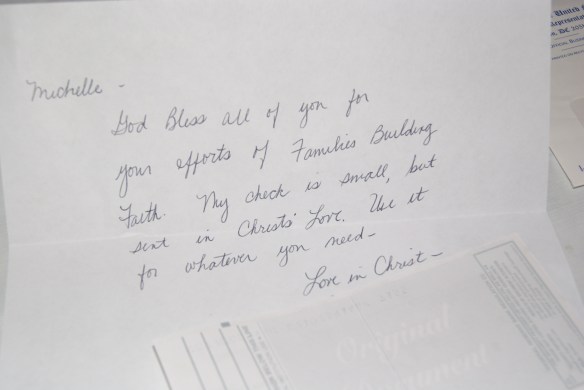 Michelle -
God Bless all of you for
your efforts of Families Building
Faith. My check is small, but
sent in Christs' Love. Use it
for whatever you need -
Love in Christ -
United
DC
Original